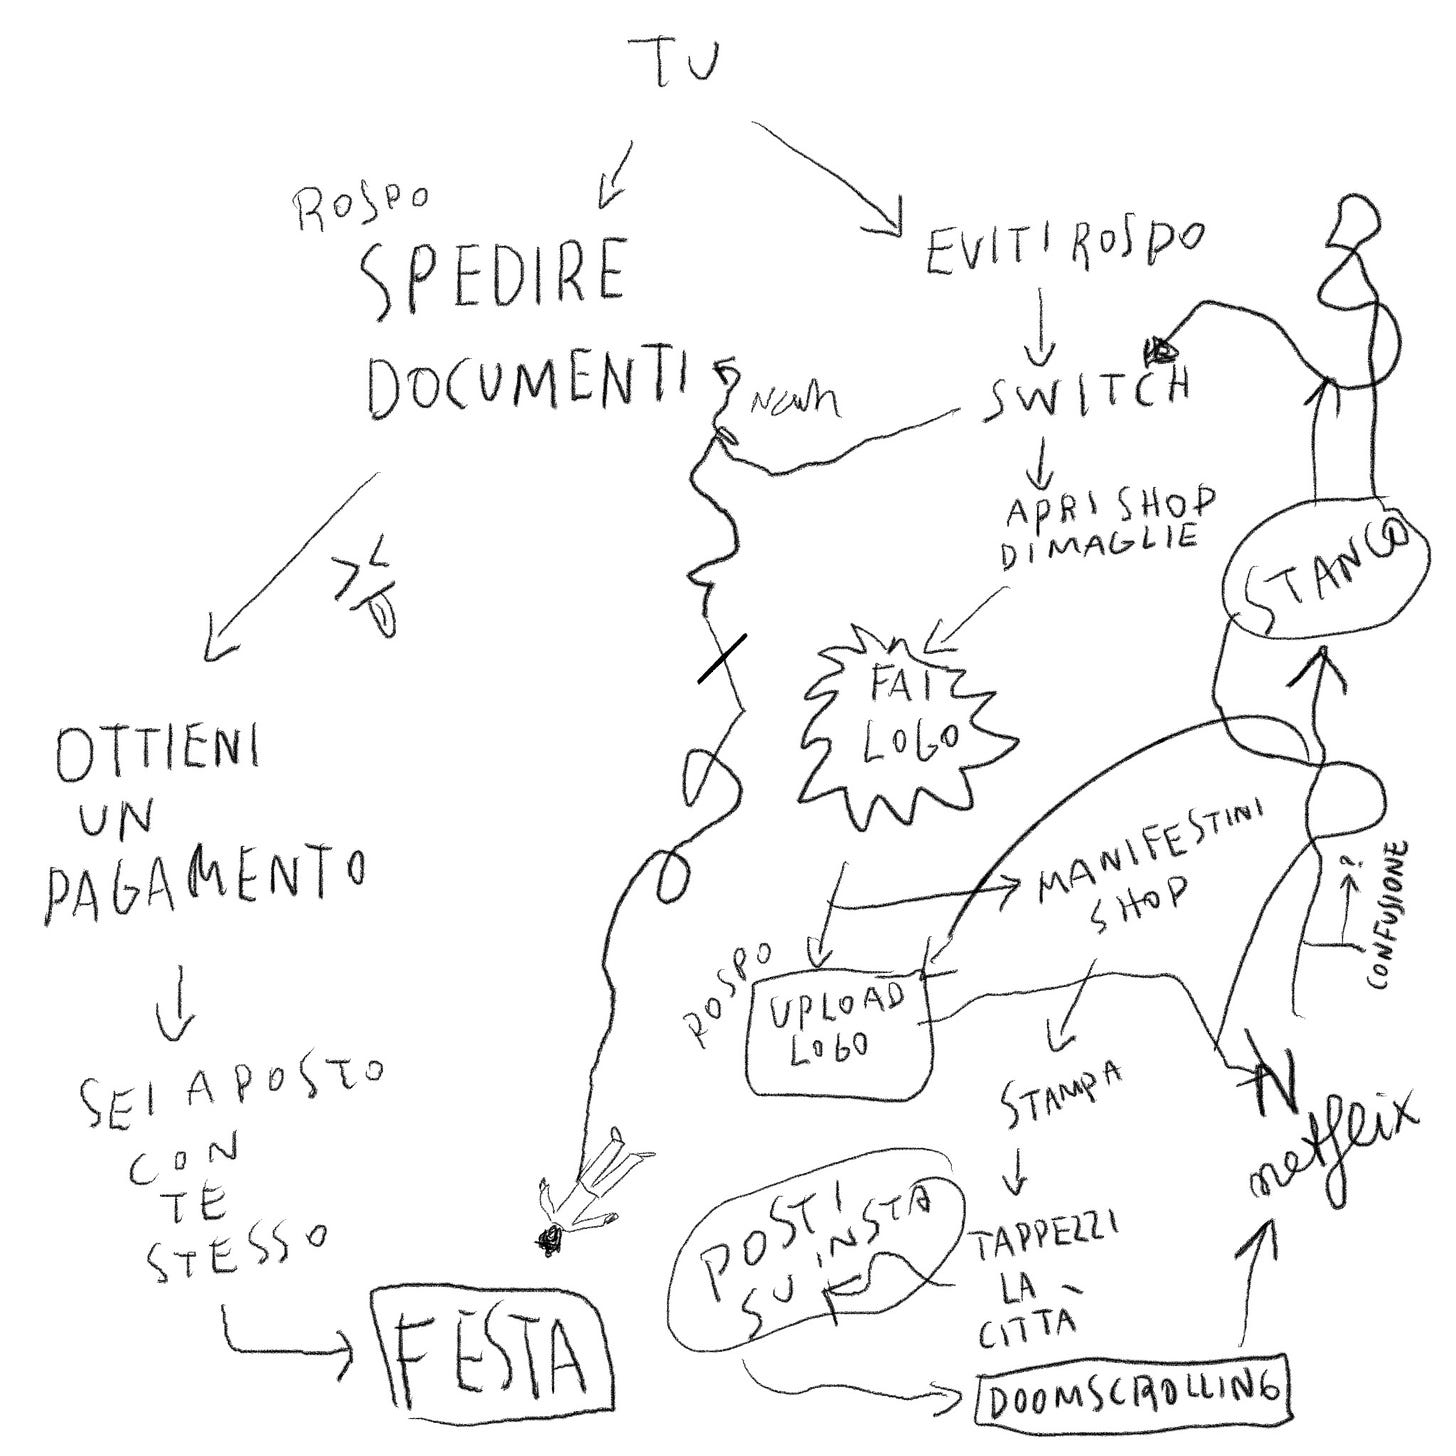 TU
ROSPO
SPEDIRE
DOCUMENTI
OTTIENI
UN
PAGAMENTO
SEI A POSTO
CON
TE
STESSO
FESTA
EVITI ROSPO
SWITCH
APRI SHOP
DI MAGLIE
FAI
LOGO
ROSPO
UPLOAD
LOGO
MANIFESTINI
SHOP
STAMPA
TAPPEZZI
LA
CITTÀ
POSTI
SU INSTA
DOOMSCROLLING
N
netflix
CONFUSIONE
?
STANCO